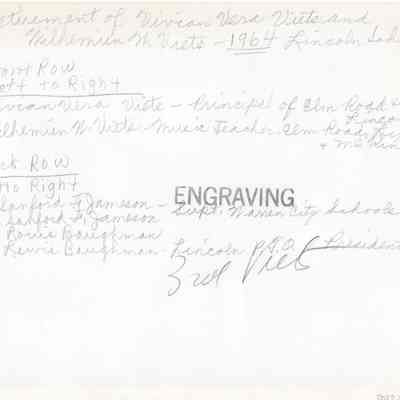 etirement of Vivian Vera Viets and
Wilhemien W. Viets - 1964 Lincoln Scho
ront Row
eft to Right
ivian Vera Viets - Principal of Elm Road s
Linco
ilhemien W. Viets - Music teacher Elm Road,
+ McKin
ck Row
to Right
Sanford F. Jameson - Supt. Warren City Schools
Sanford F. Jameson
Lewis Baughman
Lewis Baughman - Lincoln P.T.O. President
ENGRAVING
Viets